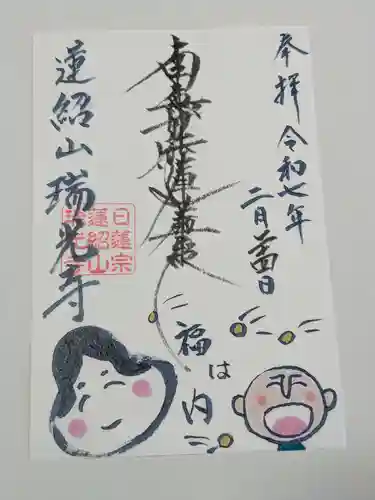 奉拝 令和七年
二月二十四日
南無妙法蓮華経
福は内
蓮紹山 瑞光寺
日蓮宗
蓮紹山
瑞光寺